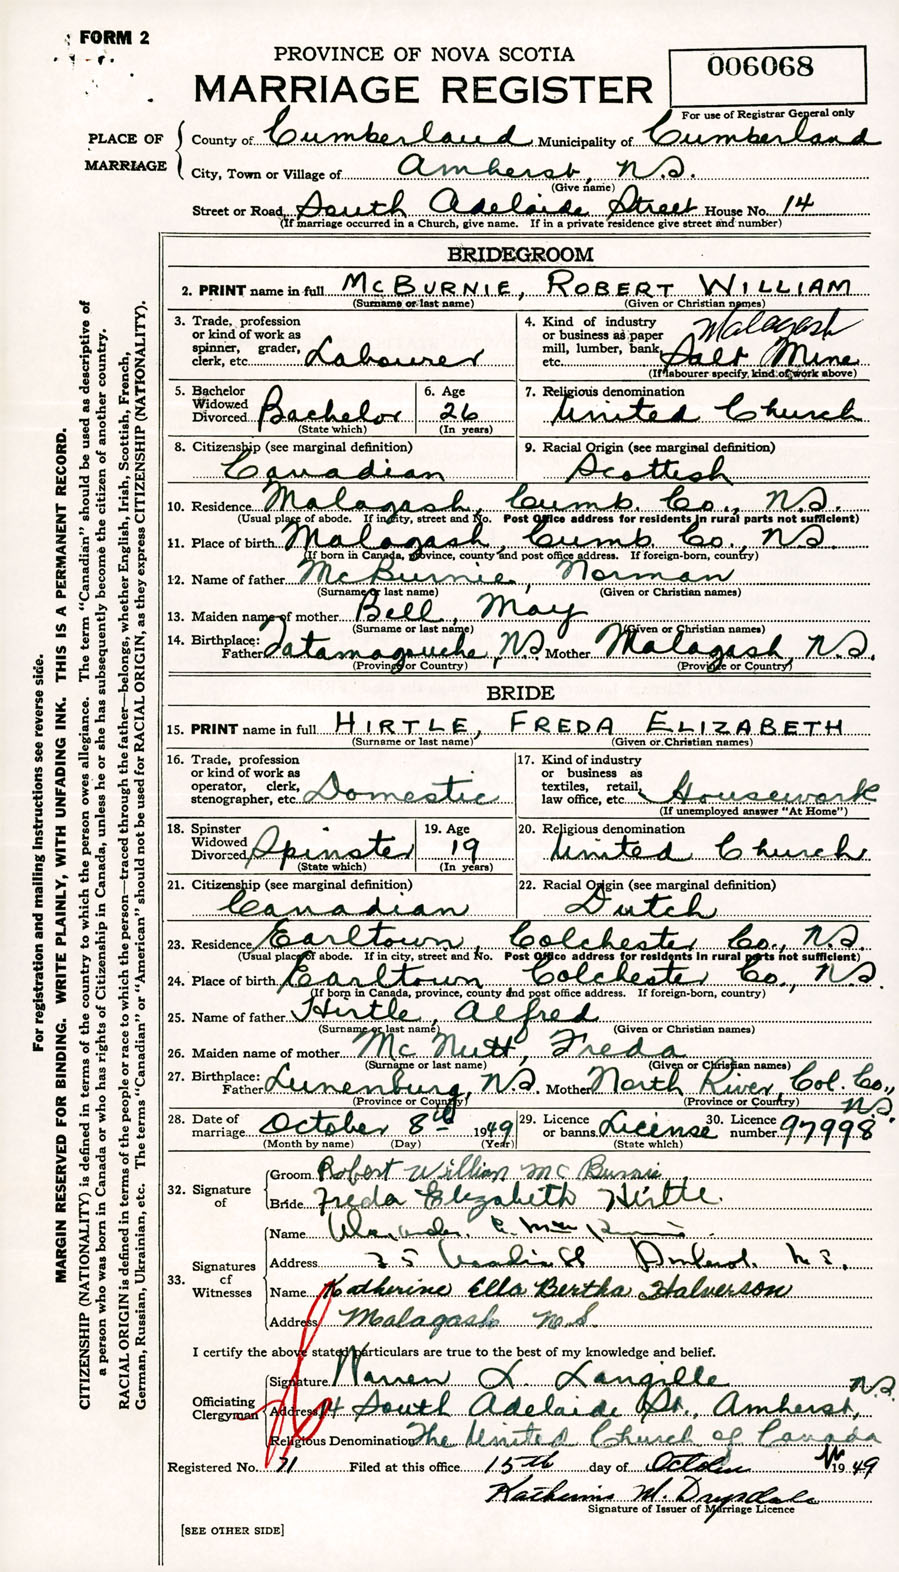 FORM 2
PROVINCE OF NOVA SCOTIA
MARRIAGE REGISTER
006068
For use of Registrar General only
PLACE OF MARRIAGE
County of Cumberland Municipality of Cumberland
City, Town or Village of Amherst, N.S.
(Give name)
Street or Road South Adelaide Street House No. 14
(If marriage occurred in a Church, give name. If in a private residence give street and number)
BRIDEGROOM
2. PRINT name in full McBURNIE, ROBERT WILLIAM
(Surname or last name) (Given or Christian names)
3. Trade, profession or kind of work as spinner, grader, clerk, etc. Labourer
4. Kind of industry or business as paper mill, lumber, bank, etc. Malagash Salt Mine
(If labourer specify kind of work above)
5. Bachelor Widowed Divorced Bachelor
(State which)
6. Age 26
(In years)
7. Religious denomination
United Church
8. Citizenship (see marginal definition)
Canadian
9. Racial Origin (see marginal definition)
Scottish
10. Residence Malagash, Cumb. Co., N.S.
(Usual place of abode. If in city, street and No. Post Office address for residents in rural parts not sufficient)
11. Place of birth Malagash, Cumb. Co., N.S.
(If born in Canada, province, county and post office address. If foreign-born, country)
12. Name of father McBurnie, Norman
(Surname or last name) (Given or Christian names)
13. Maiden name of mother Bell, May
(Surname or last name) (Given or Christian names)
14. Birthplace: Father Tatamagouche, N.S. Mother Malagash, N.S.
(Province or Country) (Province or Country)
BRIDE
15. PRINT name in full HIRTLE, FREDA ELIZABETH
(Surname or last name) (Given or Christian names)
16. Trade, profession or kind of work as operator, clerk, stenographer, etc. Domestic
17. Kind of industry or business as textiles, retail, law office, etc. Housework
(If unemployed answer "At Home")
18. Spinster Widowed Divorced Spinster
(State which)
19. Age 19
(In years)
20. Religious denomination
United Church
21. Citizenship (see marginal definition)
Canadian
22. Racial Origin (see marginal definition)
Dutch
23. Residence Earltown, Colchester Co., N.S.
(Usual place of abode. If in city, street and No. Post Office address for residents in rural parts not sufficient)
24. Place of birth Earltown Colchester Co., N.S.
(If born in Canada, province, county and post office address. If foreign-born, country)
25. Name of father Hirtle, Alfred
(Surname or last name) (Given or Christian names)
26. Maiden name of mother McNutt, Freda
(Surname or last name) (Given or Christian names)
27. Birthplace: Father Lunenburg, N.S. Mother North River, Col. Co., N.S.
(Province or Country) (Province or Country)
28. Date of marriage October 8th 1949
(Month by name) (Day) (Year)
29. Licence or banns License
(State which)
30. Licence number 97998
32. Signature of
Groom Robert William McBurnie
Bride Freda Elizabeth Hirtle.
33. Signatures of Witnesses
Name
Address 35 St Amherst. N.S.
Name Katherine Ella Bertha Halverson
Address Malagash N.S.
I certify the above stated particulars are true to the best of my knowledge and belief.
Officiating Clergyman
Signature Warren L. Langille
Address 14 South Adelaide St., Amherst, N.S.
Religious Denomination The United Church of Canada
Registered No. 71 Filed at this office 15th day of October 1949
Katherine M. Drysdale
Signature of Issuer of Marriage Licence
[SEE OTHER SIDE]
For registration and mailing instructions see reverse side.
MARGIN RESERVED FOR BINDING. WRITE PLAINLY, WITH UNFADING INK. THIS IS A PERMANENT RECORD.
CITIZENSHIP (NATIONALITY) is defined in terms of the country to which the person owes allegiance. The term "Canadian" should be used as descriptive of
a person who was born in Canada or who has rights of Citizenship in Canada, unless he or she has subsequently become the citizen of another country.
RACIAL ORIGIN is defined in terms of the people or race to which the person—traced through the father—belongs, whether English, Irish, Scottish, French,
German, Russian, Ukrainian, etc. The terms "Canadian" or "American" should not be used for RACIAL ORIGIN, as they express CITIZENSHIP (NATIONALITY).